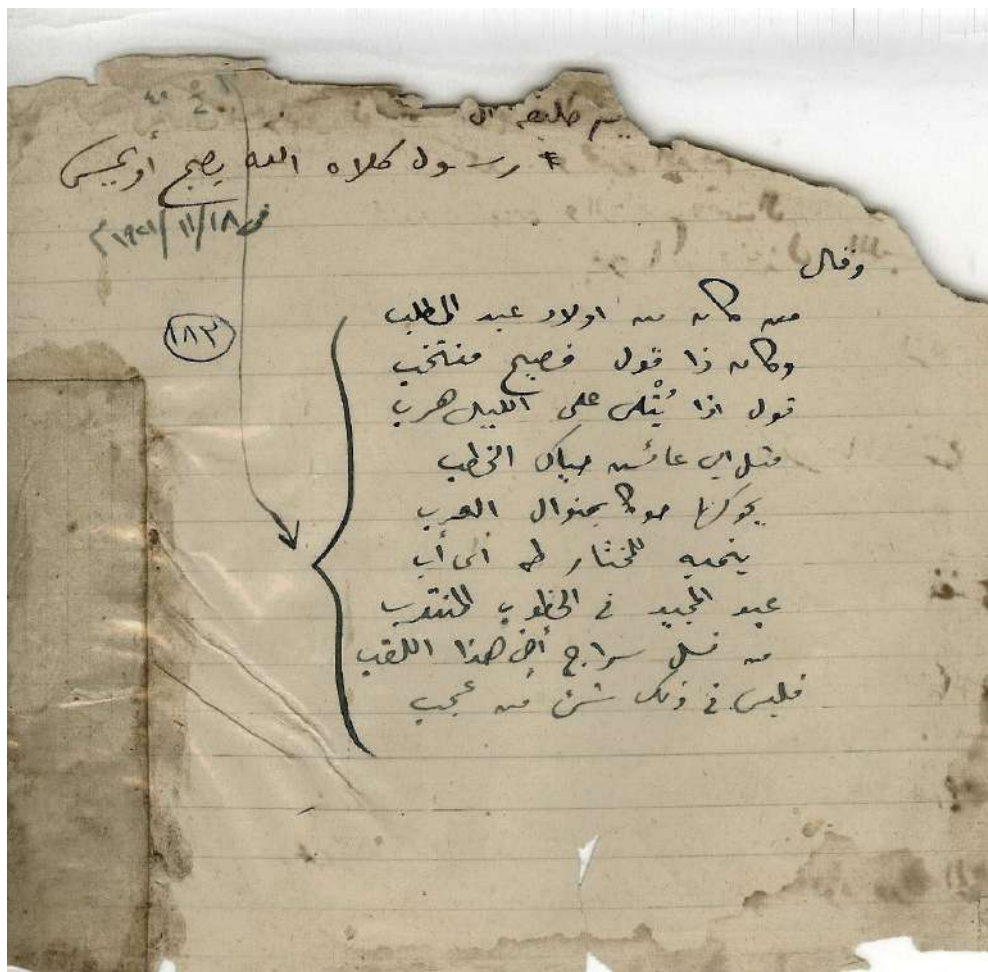 * رسول كلاه الله يصبح أو يمسى
١٨/١١/
وقال
من كان من اولاد عبد المطلب
وكان ذا قول فصيح منتخب
قول اذا يُتْلى على الليل هرب
مثل ابى عائشه حياك الخطب
يحوكها حوكا بمنوال العرب
ينميه للمختار طه أى أب
عبد المجيد فى الخطوب المنتدب
من نسل سراج هذا اللقب
فليس فى ذلك شئ من عجب
(١٨٣)